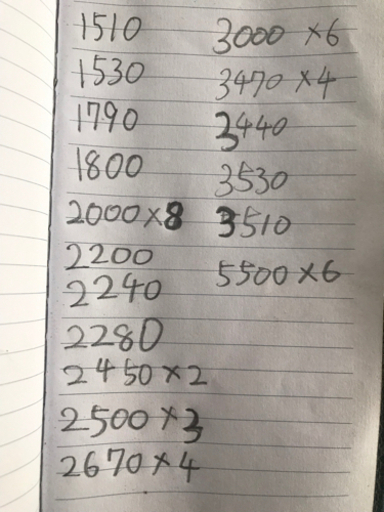 1510
1530
1790
1800
2000×8
2200
2240
2280
2450×2
2500×3
2670×4
3000×6
3470×4
3440
3530
3510
5500×6